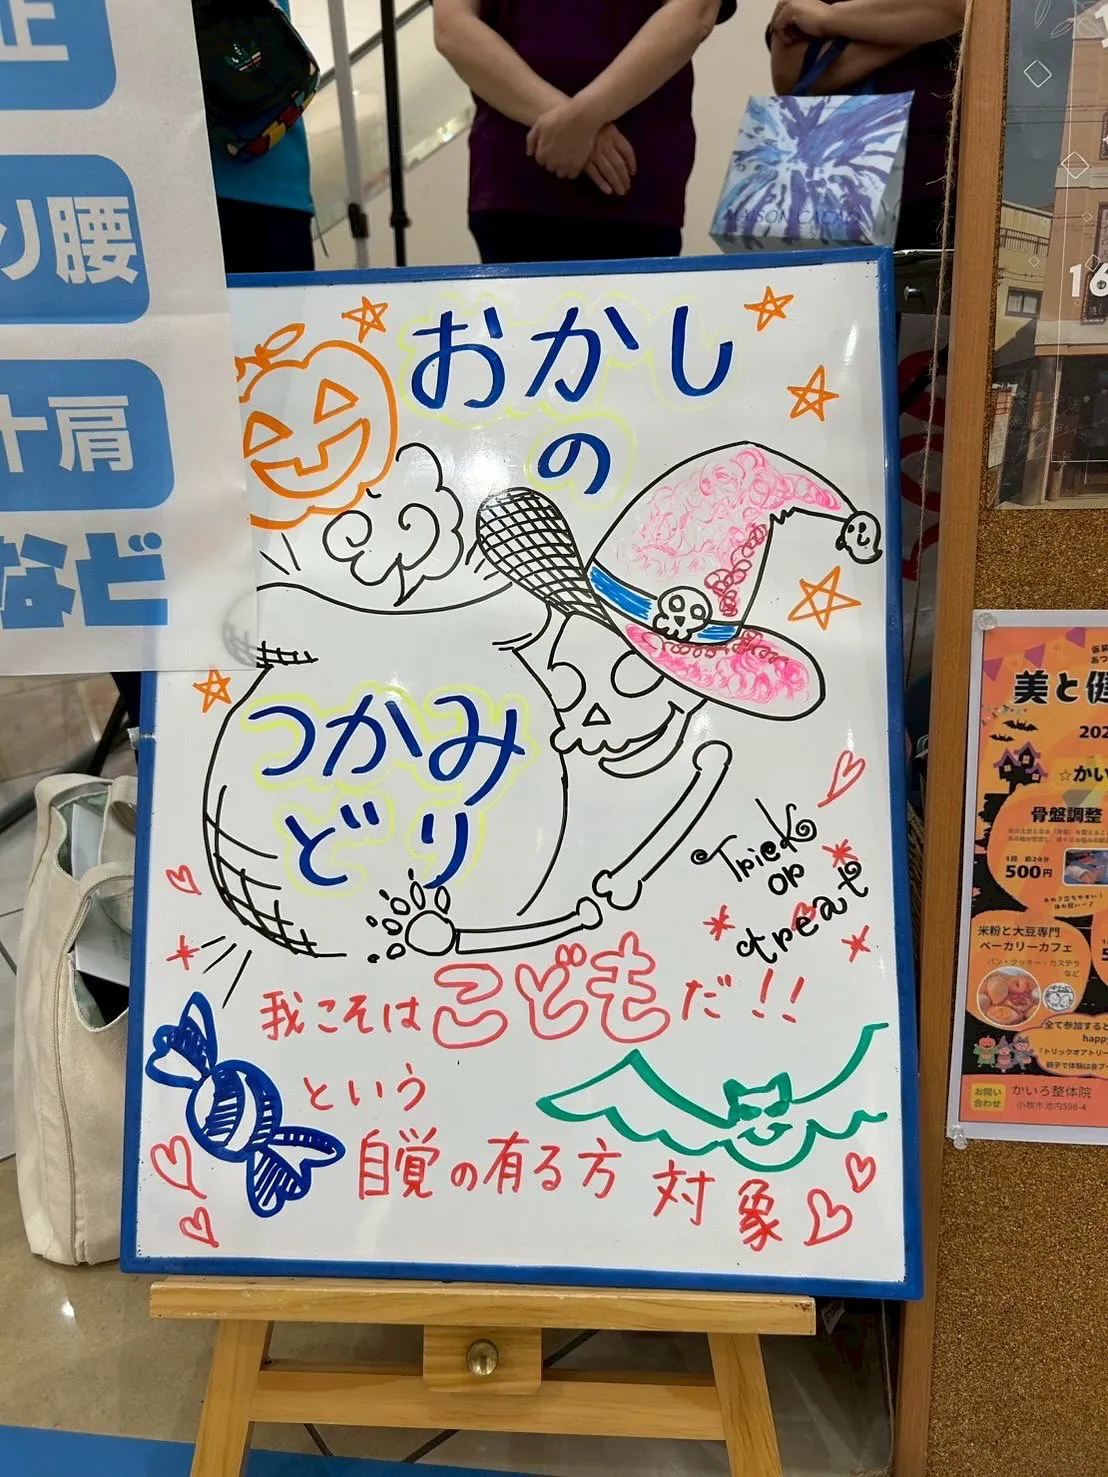 正
り腰
十肩
など
おかし
の
つかみ
どり
Trick
or
treat
我こそはこどもだ!!
という
自覚の有る方 対象
16
美と健
202
☆かい
骨盤調整
1回 約20分
500円
米粉と大豆専門
ベーカリーカフェ
パン・クッキー・カステラ
など
全て参加すると
happy
『トリックオアトリー
お問い
合わせ
かいろ整体院
小牧市池内596-4